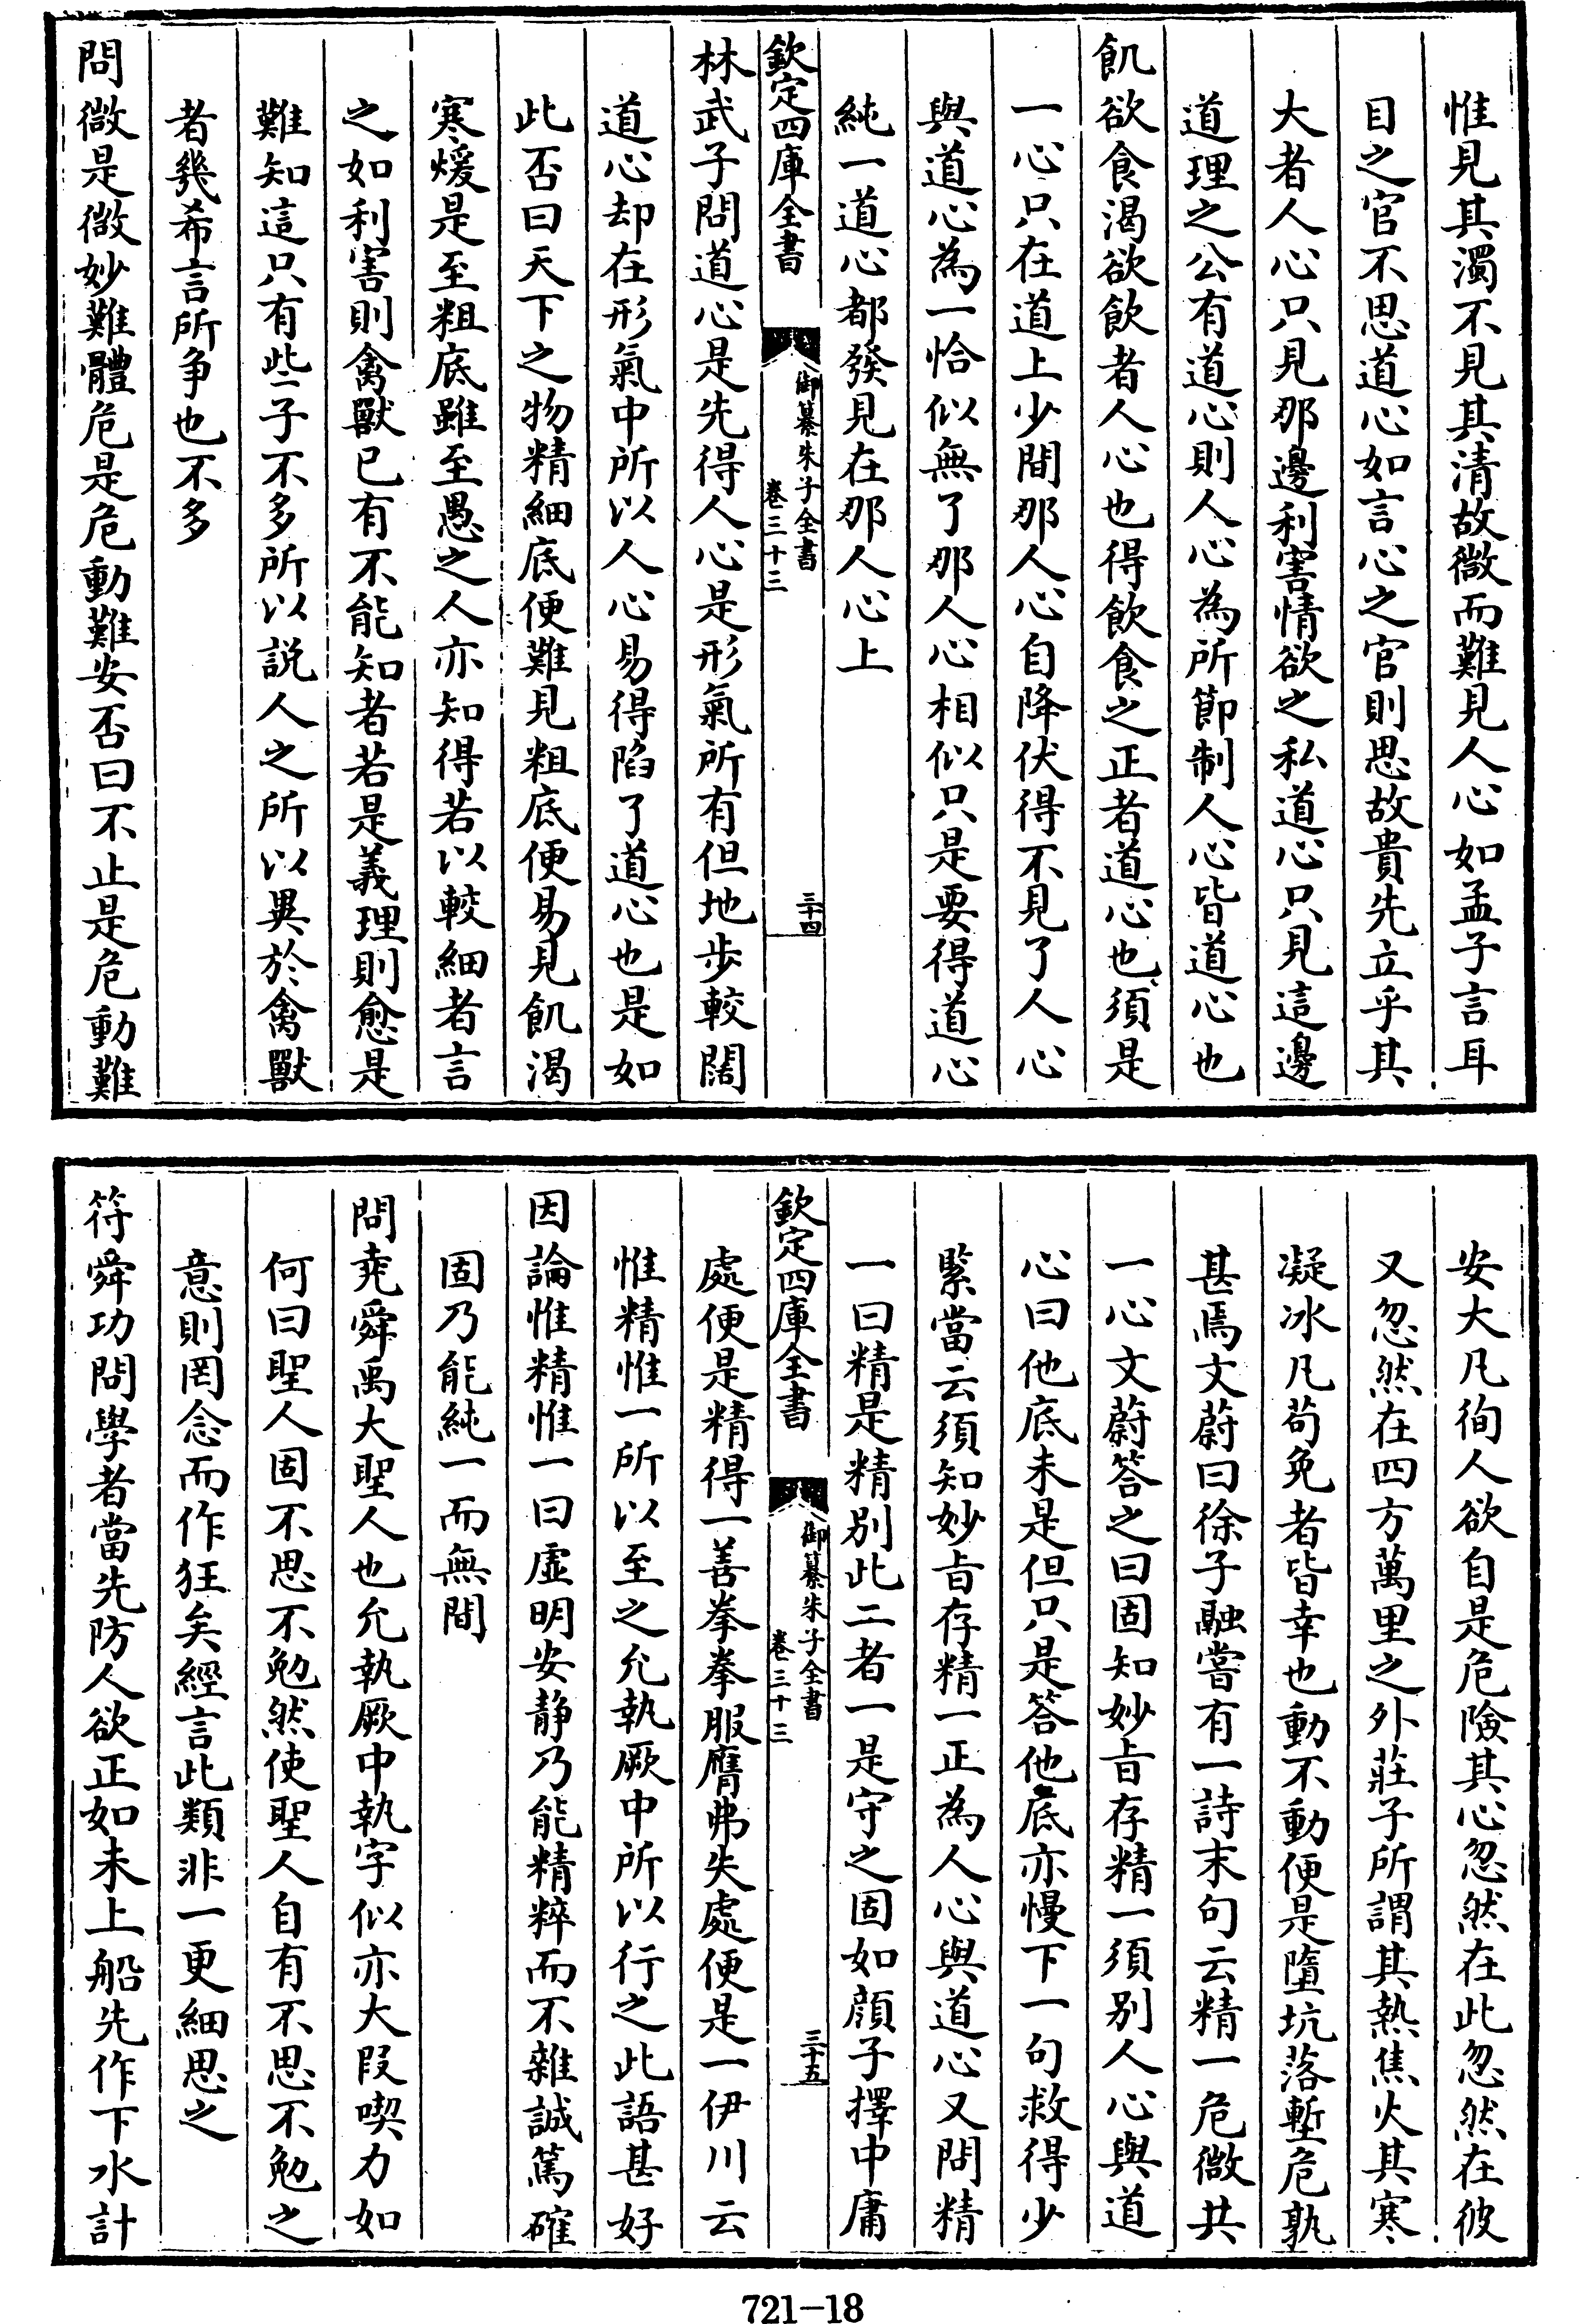 惟見其濁不見其清故微而難見人心如孟子言耳
目之官不思道心如言心之官則思故貴先立乎其
大者人心只見那邊利害情欲之私道心只見這邊
道理之公有道心則人心為所節制人心皆道心也
飢欲食渴欲飲者人心也得飲食之正者道心也須是
一心只在道上少間那人心自降伏得不見了人心
與道心為一恰似無了那人心相似只是要得道心
純一道心都發見在那人心上
欽定四庫全書
御纂朱子全書
卷三十三
三十四
林武子問道心是先得人心是形氣所有但地步較闊
道心却在形氣中所以人心易得陷了道心也是如
此否曰天下之物精細底便難見粗底便易見飢渴
寒煖是至粗底雖至愚之人亦知得若以較細者言
之如利害則禽獸已有不能知者若是義理則愈是
難知這只有些子不多所以説人之所以異於禽獸
者幾希言所爭也不多
問微是微妙難體危是危動難安否曰不止是危動難
安大凡徇人欲自是危險其心忽然在此忽然在彼
又忽然在四方萬里之外莊子所謂其熱焦火其寒
凝冰凡苟免者皆幸也動不動便是墮坑落塹危孰
甚焉文蔚曰徐子融嘗有一詩末句云精一危微共
一心文蔚答之曰固知妙旨存精一須别人心與道
心曰他底未是但只是答他底亦慢下一句救得少
緊當云須知妙旨存精一正為人心與道心又問精
一曰精是精别此二者一是守之固如顔子擇中庸
欽定四庫全書
御纂朱子全書
卷三十三
三十五
處便是精得一善拳拳服膺弗失處便是一伊川云
惟精惟一所以至之允執厥中所以行之此語甚好
因論惟精惟一曰虛明安靜乃能精粹而不雜誠篤確
固乃能純一而無間
問堯舜禹大聖人也允執厥中執字似亦大段喫力如
何曰聖人固不思不勉然使聖人自有不思不勉之
意則罔念而作狂矣經言此類非一更細思之
符舜功問學者當先防人欲正如未上船先作下水計
721-18